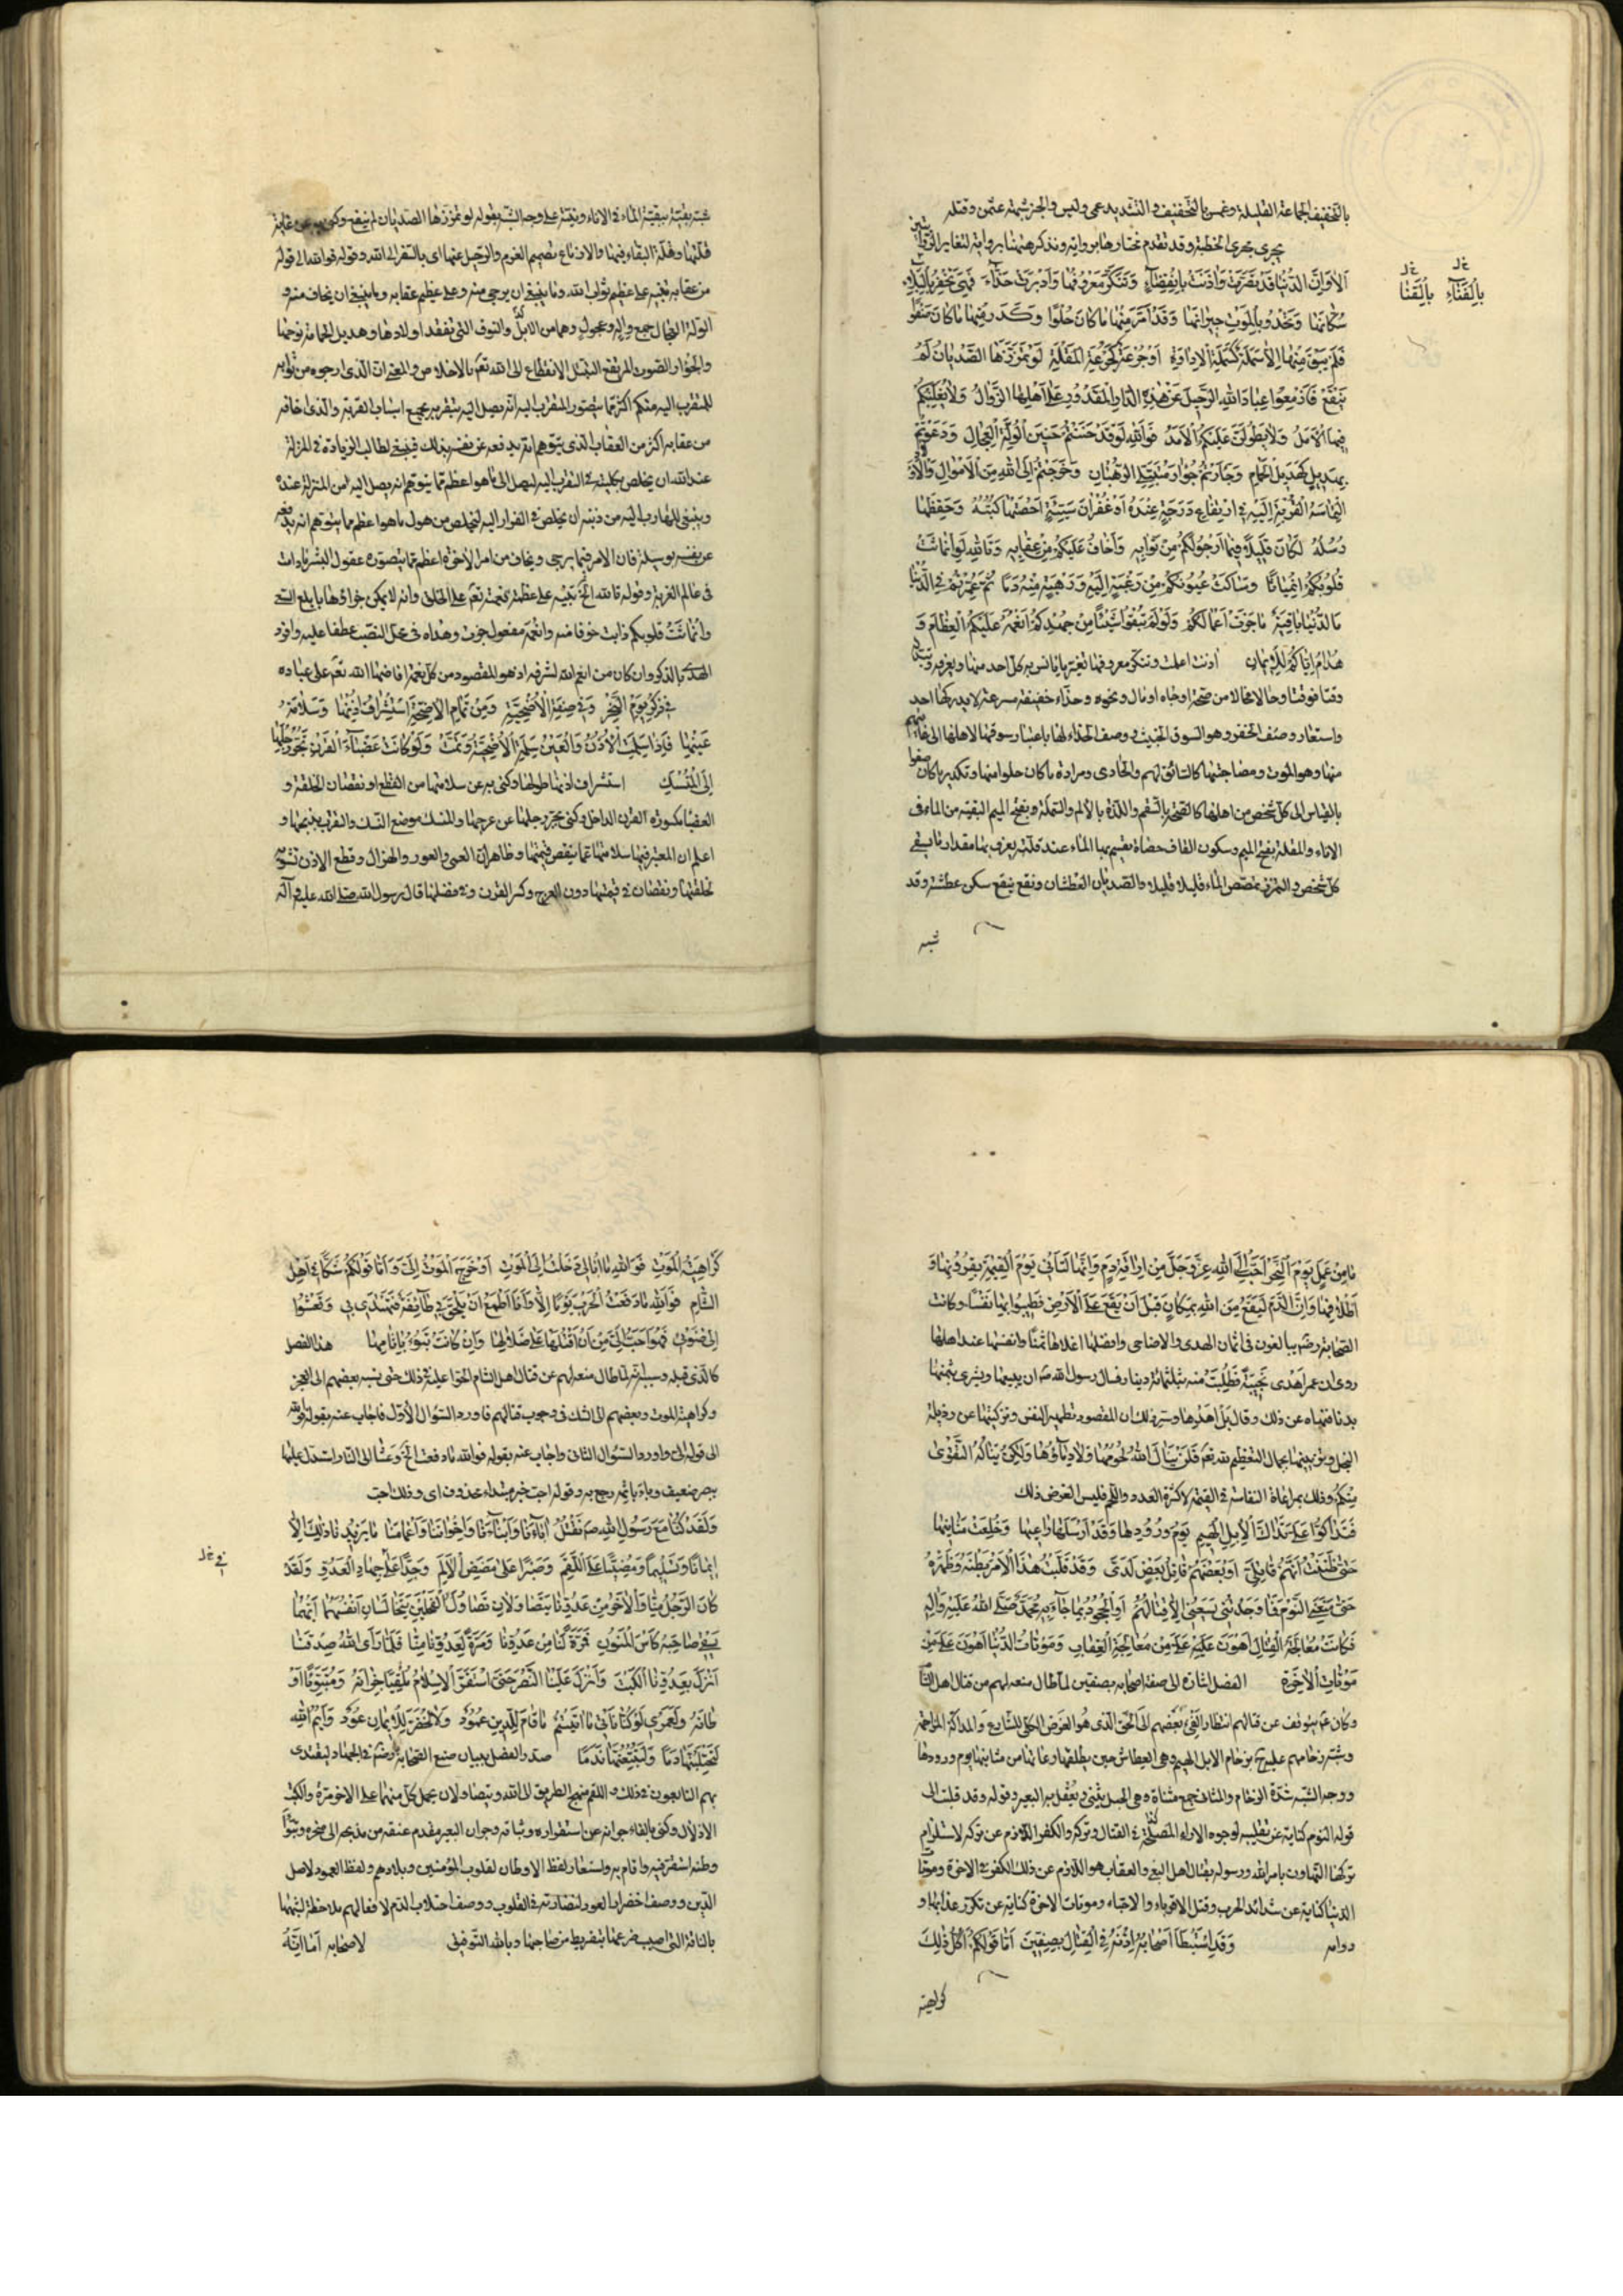 بالتخفيف الجماعة القليلة وغمس بالتخفيف والتشديد عمى ولبس والجزر شمة عتمن وقتله
يجري مجرى الخطبة وقد تقدم مختارها برواية ونذكرها هيهنا برواية لتغاير الروايتين
اَلا وَاِنَّ الدُّنْيا قَدْ تَصَرَّمَتْ وَاٰذَنَتْ بِانْقِضَاءٍ وَتَنَكَّرَ مَعْرُوفُهٰا وَاَدْبَرَتْ حَذّاءَ فَهِيَ تَحْفِزُ بِالْفَنَاءِ
سُكّانَهٰا وَتَحْدُو بِالْمَوْتِ جِيرٰانَهٰا وَقَدْ اَمَرَّ مِنْهٰا مٰا كٰانَ حُلْوًا وَكَدَرَ مِنْهٰا مٰا كٰانَ صَفْوًا
فَلَمْ يَبْقَ مِنْهٰا اِلّا سَمَلَةٌ كَسَمَلَةِ الْاِدٰاوَةِ اَوْ جُرْعَةٌ كَجُرْعَةِ الْمَقْلَةِ لَوْ تَمَزَّزَهَا الصَّدْيٰانُ لَمْ
يَنْقَعْ فَاَزْمِعُوا عِبٰادَ اللهِ الرَّحِيلَ عَنْ هٰذِهِ الدّٰارِ الْمَقْدُورِ عَلىٰ اَهْلِهَا الزَّوٰالُ وَلٰا يَغْلِبَنَّكُمْ
فِيهَا الْاَمَلُ وَلٰا يَطُولَنَّ عَلَيْكُمُ الْاَمَدُ فَوَاللهِ لَوْ حَنَنْتُمْ حَنِينَ الْوُلَّهِ الْعِجٰالِ وَدَعَوْتُمْ
بِهَدِيلِ الْحَمٰامِ وَجَأَرْتُمْ جُؤٰارَ مُتَبَتِّلِي الرُّهْبٰانِ وَخَرَجْتُمْ اِلَى اللهِ مِنَ الْاَمْوٰالِ وَالْاَوْلاد
اِلْتِمٰاسَ الْقُرْبَةِ اِلَيْهِ فِي ارْتِفٰاعِ دَرَجَةٍ عِنْدَهُ اَوْ غُفْرٰانِ سَيِّئَةٍ اَحْصَتْهٰا كُتُبُهُ وَحَفِظَهٰا
رُسُلُهُ لَكٰانَ قَلِيلًا فِيمٰا اَرْجُو لَكُمْ مِنْ ثَوٰابِهِ وَاَخٰافُ عَلَيْكُمْ مِنْ عِقٰابِهِ وَتَاللهِ لَوِ انْمٰاثَتْ
قُلُوبُكُمُ انْمِيٰاثًا وَسٰالَتْ عُيُونُكُمْ مِنْ رَغْبَةٍ اِلَيْهِ وَرَهْبَةٍ مِنْهُ دَمًا ثُمَّ عُمِّرْتُمْ فِي الدُّنْيٰا
مَا الدُّنْيٰا بٰاقِيَةٌ مٰا جَزَتْ اَعْمٰالُكُمْ وَلَوْ لَمْ تُبْقُوا شَيْئًا مِنْ جُهْدِكُمْ اَنْعُمَهُ عَلَيْكُمُ الْعِظٰامَ وَ
هُدٰاهُ اِيّٰاكُمْ لِلْاِيمٰانِ اذنت اعلمت وتنكر معروفها تغير ما يانس به كل احد منها ويعرفه
وقتا فوقتا وحالا فحالا من صحة او جاه او مال ونحوه وحذاء خفيفة سرعة لا يدركها احد
واستعار وصف الحفز وهو السوق الحثيث ووصف الحداء لها باعتبار سوقها لاهلها الى غايتهم
منها وهو الموت ومصاحبتها كالسائق لهم والحادي ومرارة ما كان حلوا منها وتكدير ما كان صفوا
بالقياس الى كل شخص من اهلها كالصحة بالسقم واللذة بالالم والسملة بفتح الميم البقية من الماء في
الاناء والمقلة بفتح الميم وسكون القاف حصاة يقسم بها الماء عند قلته يعرف بها مقدار ما يسقى
كل شخص والتمزز تمصص الماء قليلا قليلا والصديان العطشان ونقع ينقع سكن عطشه وقد
شبه
بِالْفَنَاءِ بِالْفَنَا
شبه بقيتها ببقية الماء في الاناء وبينه على وجه الشبه بقوله لو تمززها الصديان لم ينقع وكنى به عن غاية
قلتها وقلة البقاء فيها والازماع تصميم العزم والرحيل عنها اي بالسفر الى الله وقوله فوالله الى قوله
من عقابه تنبيه على عظيم ثواب الله وما ينبغي ان يرجى منه وعلى عظيم عقابه وما ينبغي ان يخاف منه و
الوله العجال جمع واله وعجول وهما من الابل النوق التي تفقد اولادها وهديل الحمامة نوحها
والجؤار الصوت المرتفع التبتل الانقطاع الى الله تعالى بالاخلاص والمعنى ان الذي ارجوه من ثوابه
للمتقرب اليه منكم اكثر مما يتصور المتقرب اليه انه يصل اليه بتقربه بجميع اسباب القربة والذي اخافه
من عقابه اكثر من العقاب الذي يتوهم انه يدفعه عن نفسه بذلك فينبغي لطالب الزيادة في المنزلة
عند الله ان يخلص بكليته في التقرب اليه ليصل الى ما هو اعظم مما يتوهم انه يصل اليه من المنزلة عنده
وينبغي للهارب اليه من ذنبه ان يخلص في الفرار اليه ليخلص من هول ما هو اعظم مما يتوهم انه يدفعه
عن نفسه بوسيلة فان الامر فيما يرجى ويخاف من امر الاخرة اعظم مما يتصوره عقول البشر ما دامت
في عالم الغربة وقوله تالله الخ تنبيه على عظمة نعمة تعالى على الخلق وانه لا يمكن جزاؤها بابلغ السعي
وانماثت قلوبكم ذابت خوفا منه وانعمه مفعول جزت وهداه في محل النصب عطفا عليه وافرد
الهدى بالذكر وان كان من انعم الله لشرفه اذ هو المقصود من كل نعمة افاضها الله تعالى على عباده
في ذِكْرِ يَوْمِ النَّحْرِ وَفي صِفَةِ الْاُضْحِيَّةِ وَمِنْ تَمٰامِ الْاُضْحِيَّةِ اسْتِشْرٰافُ اُذُنِهٰا وَسَلٰامَةُ
عَيْنِهٰا فَاِذٰا سَلِمَتِ الْاُذُنُ وَالْعَيْنُ سَلِمَتِ الْاُضْحِيَّةُ وَتَمَّتْ وَلَوْ كٰانَتْ عَضْبٰاءَ الْقَرْنِ تَجُرُّ رِجْلَهٰا
اِلَى الْمَنْسَكِ استشراف اذنها طولها وكنى به عن سلامتها من القطع او نقصان الخلقة و
العضباء مكسورة القرن الداخل وكنى بجر رجلها عن عرجها والمنسك موضع النسك والتقرب بذبحها و
اعلم ان المعتبر فيها سلامتها عما ينقص قيمتها وظاهر ان العمى والعور والهزال وقطع الاذن تشويه
لخلقتها ونقصان في قيمتها دون العرج وكسر القرن وفي فضلها قال رسول الله صلى الله عليه وآله
مٰا مِنْ عَمَلٍ يَوْمَ النَّحْرِ اَحَبَّ اِلَى اللهِ عَزَّ وَجَلَّ مِنْ اِرٰاقَةِ دَمٍ وَاِنَّهٰا لَتَأْتِي يَوْمَ الْقِيٰمَةِ بِقُرُونِهٰا وَ
اَظْلٰافِهٰا وَاِنَّ الدَّمَ لَيَقَعُ مِنَ اللهِ بِمَكٰانٍ قَبْلَ اَنْ يَقَعَ عَلَى الْاَرْضِ فَطِيبُوا بِهٰا نَفْسًا وكانت
الصحابة رض يبالغون في اثمان الهدي والاضاحي وافضلها اغلاها ثمنًا وانفسها عند اهلها
روي ان عمر اهدى نجيبة فطُلِبَتْ منه بثلثمائة دينار فسال رسول الله ص ان يبيعها ويشتري بثمنها
بدنا فنهاه عن ذلك وقال بل اهدها وسر ذلك ان المقصود تطهير النفس وتزكيتها عن رذيلة
البخل وتزيينها بجمال التعظيم لله تعالى فلَنْ يَنٰالَ اللهَ لُحُومُهٰا وَلٰا دِمٰاؤُهٰا وَلٰكِنْ يَنٰالُهُ التَّقْوىٰ
مِنْكُمْ وذلك بمراعاة النفاسة في القيمة لا كثرة العدد واللحم فليس الغرض ذلك
فَتَدٰاكُّوا عَلَيَّ تَدٰاكَّ الْاِبِلِ الْهِيمِ يَوْمَ وُرُودِهٰا وَقَدْ اَرْسَلَهٰا رٰاعِيهٰا وَخُلِعَتْ مَثٰانِيهٰا
حَتّٰى ظَنَنْتُ اَنَّهُمْ قٰاتِلِيَّ اَوْ بَعْضُهُمْ قٰاتِلُ بَعْضٍ لَدَيَّ وَقَدْ قَلَّبْتُ هٰذَا الْاَمْرَ بَطْنَهُ وَظَهْرَهُ
حَتّٰى مَنَعَنِي النَّوْمَ فَمٰا وَجَدْتُنِي يَسَعُنِي اِلّٰا قِتٰالُهُمْ اَوِ الْجُحُودُ بِمٰا جٰاءَ بِهِ مُحَمَّدٌ صَلَّى اللهُ عَلَيْهِ وَاٰلِهِ
فَكٰانَتْ مُعٰالَجَةُ الْقِتٰالِ اَهْوَنَ عَلَيَّ مِنْ مُعٰالَجَةِ الْعِقٰابِ وَمَوْتٰاتُ الدُّنْيٰا اَهْوَنَ عَلَيَّ مِنْ
مَوْتٰاتِ الْاٰخِرَةِ الفصل اشارة الى صفة اصحابه بصفين لما طال منعه لهم من قتال اهل الشام
وكان ع يتوقف عن قتالهم انتظار لفيء بعضهم الى الحق الذي هو الغرض الكلي للشارع والمداكة المزاحمة
وشبه زحامهم عليه بزحام الابل الهيم وهي العطاش حين يطلقها رعاتها من مثانيها يوم ورودها
ووجه الشبه شدة الزحام والمثاني جمع مثناة وهي الحبل يثنى ويعقل به البعير وقوله وقد قلبت الى
قوله النوم كناية عن تقليبه لوجوه الاراء المصلحة في القتال وتركه والكفر اللازم عن تركه لاستلزام
تركها التهاون بامر الله ورسوله بقتال اهل البغي والعقاب هو اللازم عن ذلك الكفر في الاخرة وموتات
الدنيا كناية عن شدائد الحرب وقتل الاقرباء والاحباء وموتات الاخرة كناية عن تكرر عذابها و
دوامه وَقَدِ اسْتَبْطَأَ اَصْحٰابُهُ اِذْنَهُ فِي الْقِتٰالِ بِصِفِّينَ اَمّٰا قَوْلُكُمْ اَكُلُّ ذٰلِكَ
كراهية
كَرٰاهِيَةَ الْمَوْتِ فَوَاللهِ مٰا اُبٰالِي دَخَلْتُ اِلَى الْمَوْتِ اَوْ خَرَجَ الْمَوْتُ اِلَيَّ وَاَمّٰا قَوْلُكُمْ شَكًّا فِي اَهْلِ
الشّٰامِ فَوَاللهِ مٰا دَفَعْتُ الْحَرْبَ يَوْمًا اِلّٰا وَاَنَا اَطْمَعُ اَنْ يَلْحَقَ بِي طٰائِفَةٌ فَتَهْتَدِيَ بِي وَتَعْشُوَا
اِلىٰ ضَوْئِي فَهُوَ اَحَبُّ اِلَيَّ مِنْ اَنْ اَقْتُلَهٰا عَلىٰ ضَلٰالِهٰا وَاِنْ كٰانَتْ تَبُوءُ بِاٰثٰامِهٰا هذا الفصل
كالذي قبله وسببه انه لما طال منعه لهم عن قتال اهل الشام الحوا عليه في ذلك حتى نسبه بعضهم الى العجز
وكراهية الموت وبعضهم الى الشك في وجوب قتالهم فاورد السؤال الاول فاجاب عنه بقوله فوالله
الى قوله الي واورد السؤال الثاني واجاب عنه بقوله فوالله ما دفعت الخ وعشا الى النار استدل عليها
ببصر ضعيف وباء باثمه رجع به وقوله احب خبر مبتداء محذوف اي وذلك احب
وَلَقَدْ كُنّٰا مَعَ رَسُولِ اللهِ ص نَقْتُلُ اٰبٰاءَنٰا وَاَبْنٰاءَنٰا وَاِخْوٰانَنٰا وَاَعْمٰامَنٰا مٰا يَزِيدُنٰا ذٰلِكَ اِلّٰا
اِيمٰانًا وَتَسْلِيمًا وَمُضِيًّا عَلَى اللَّقَمِ وَصَبْرًا عَلىٰ مَضَضِ الْاَلَمِ وَجِدًّا عَلىٰ جِهٰادِ الْعَدُوِّ وَلَقَدْ
كٰانَ الرَّجُلُ مِنّٰا وَالْاٰخَرُ مِنْ عَدُوِّنٰا يَتَصٰاوَلٰانِ تَصٰاوُلَ الْفَحْلَيْنِ يَتَخٰالَسٰانِ اَنْفُسَهُمٰا اَيُّهُمٰا
يَسْقِي صٰاحِبَهُ كَأْسَ الْمَنُونِ فَمَرَّةً لَنٰا مِنْ عَدُوِّنٰا وَمَرَّةً لِعَدُوِّنٰا مِنّٰا فَلَمّٰا رَأَى اللهُ صِدْقَنٰا
اَنْزَلَ بِعَدُوِّنَا الْكَبْتَ وَاَنْزَلَ عَلَيْنَا النَّصْرَ حَتَّى اسْتَقَرَّ الْاِسْلٰامُ مُلْقِيًا جِرٰانَهُ وَمُتَبَوِّئًا اَوْ
طٰانَهُ وَلَعَمْرِي لَوْ كُنّٰا نَأْتِي مٰا اَتَيْتُمْ مٰا قٰامَ لِلدِّينِ عَمُودٌ وَلٰا اخْضَرَّ لِلْاِيمٰانِ عُودٌ وَاَيْمُ اللهِ
لَتَحْتَلِبُنَّهٰا دَمًا وَلَتُتْبِعُنَّهٰا نَدَمًا صدر الفصل ببيان صنع الصحابة رض في الجهاد ليقتدي
بهم التابعون في ذلك واللقم منهج الطريق الى الله ويتصاولان يحمل كل منهما على الاخر مرة والكبت
الاذلال وكنى بالقاء جرانه عن استقراره وثباته وجران البعير مقدم عنقه من مذبحه الى منحره وتبوّا
وطنه استقر فيه واقام به واستعار لفظ الاوطان لقلوب المؤمنين وبلادهم ولفظ العمود لاصل
الدين ووصف اخضرار العود لنضارته في القلوب ووصف احتلاب الدم لافعالهم ملاحظة لشبهها
بالناقة التي اصيب ضرعها بتفريط من صاحبها وبالله التوفيق لاصحابه اَمٰا اِنَّهُ